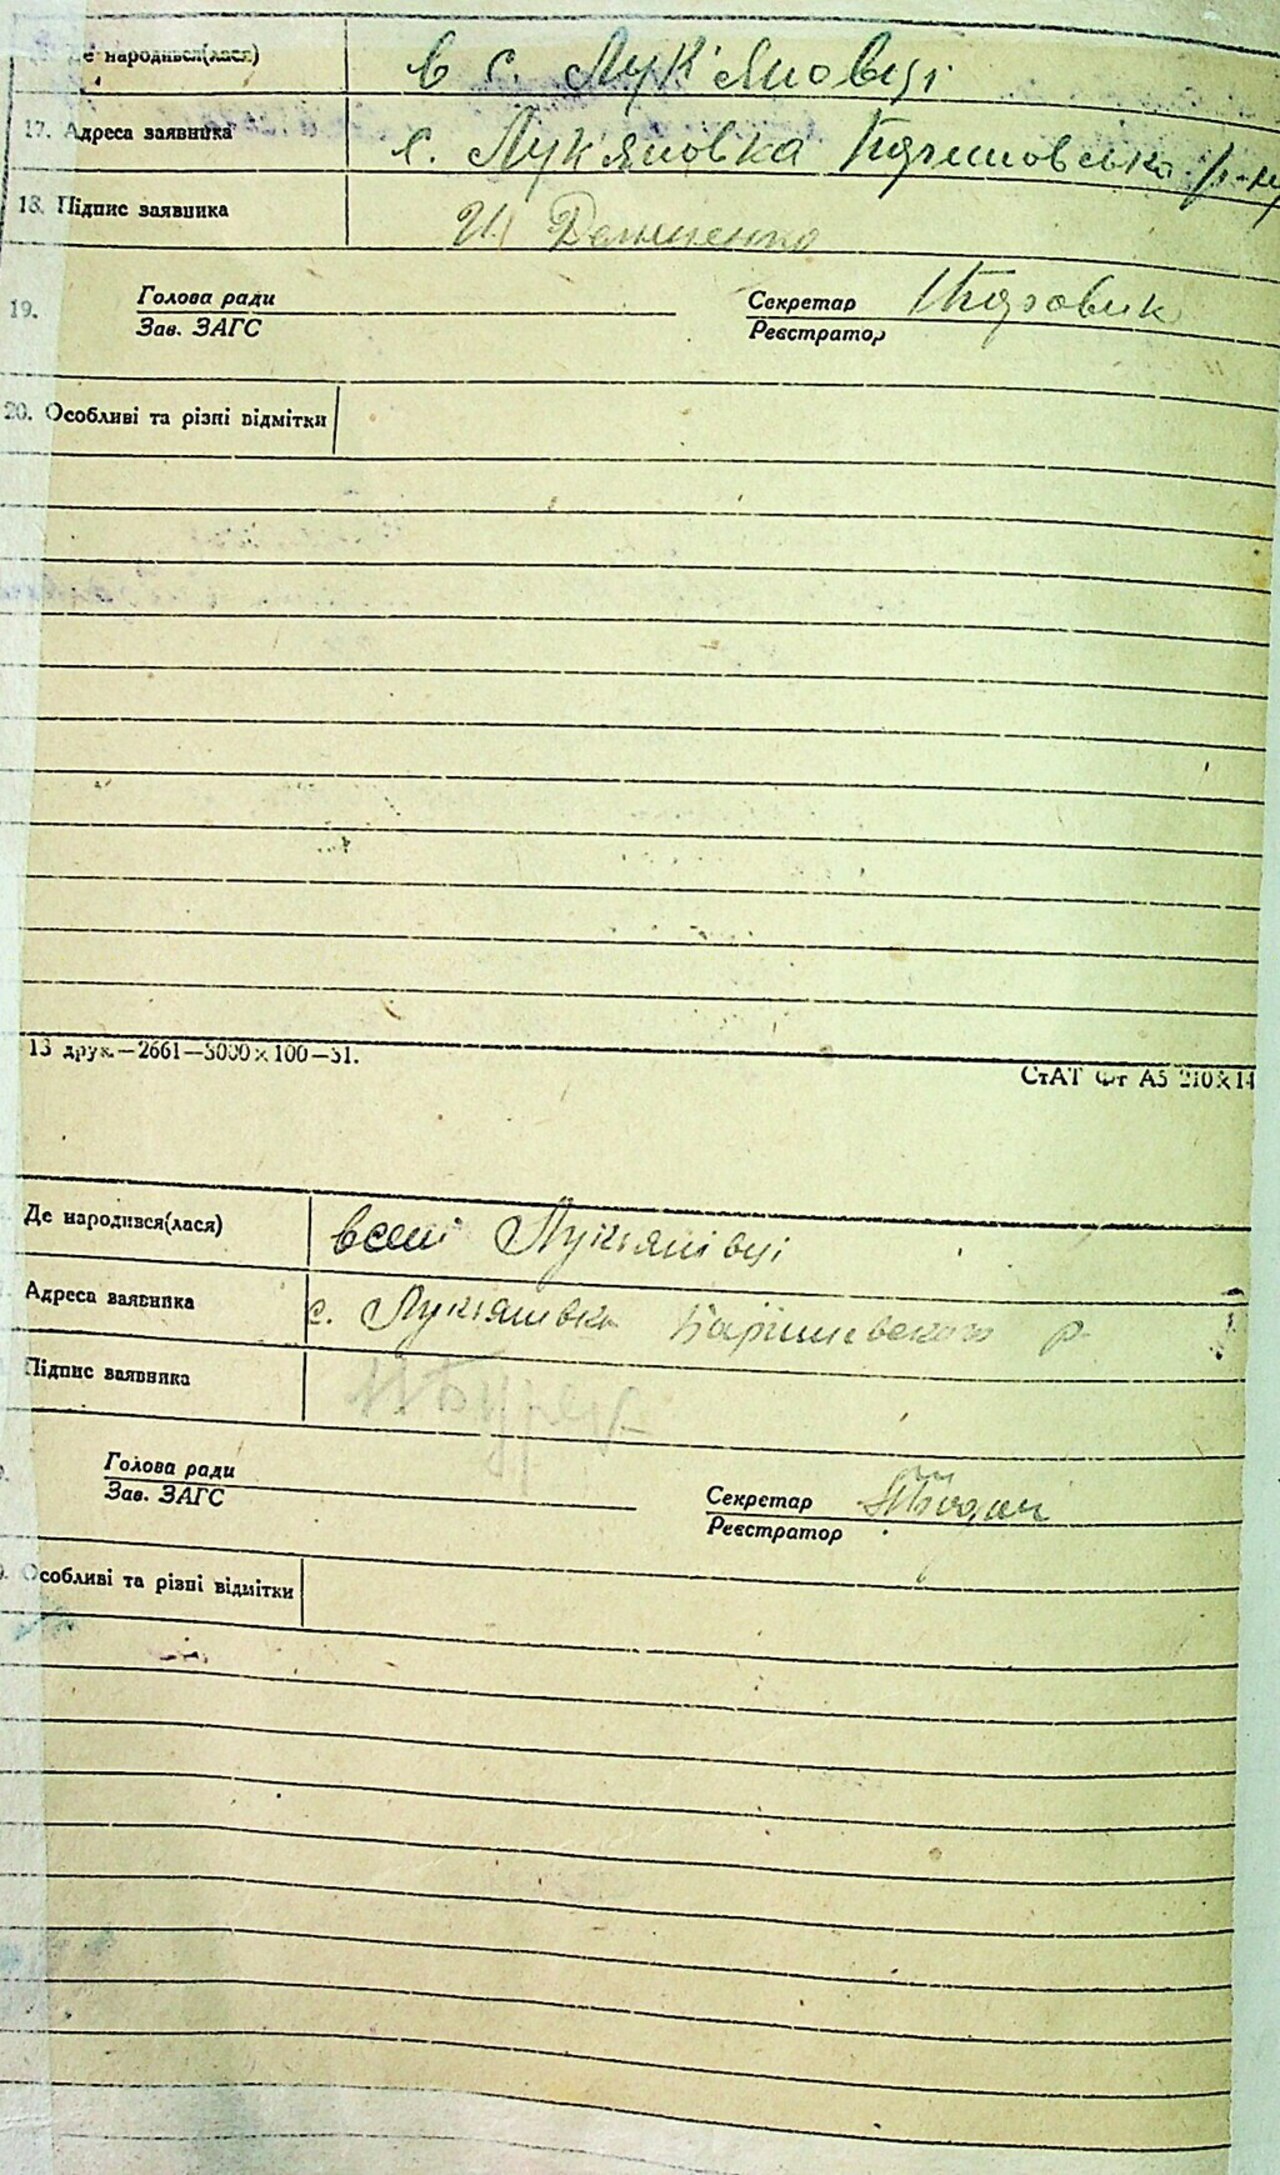 Де народився(лася) в с. Лук'яновці
17. Адреса заявника с. Лук'яновка р-ну
18. Підпис заявника
19. Голова ради Секретар
Зав. ЗАГС Реєстратор
20. Особливі та різні відмітки
13 друк.—2661—5000×100—31.
СтАТ Фт А5 210×14
Де народився(лася) в селі Лукіянівці
Адреса заявника с. Лукіянивка Баришивского р
Підпис заявника
Голова ради Секретар
Зав. ЗАГС Реєстратор
Особливі та різні відмітки